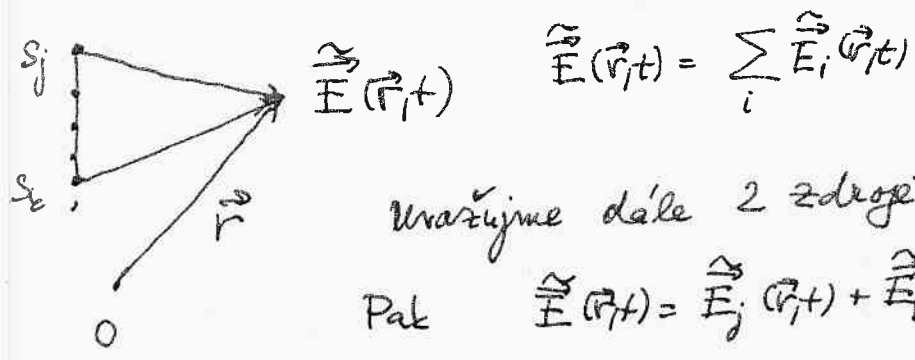 S_j
$\tilde{\vec{E}}(\vec{r},t)$ $\tilde{\vec{E}}(\vec{r},t) = \sum_i \tilde{\vec{E}}_i(\vec{r},t)$
S_k
$\vec{r}$
uvažujme dále 2 zdroje
O
Pak $\tilde{\vec{E}}(\vec{r},t) = \tilde{\vec{E}}_j(\vec{r},t) + \tilde{\vec{E}}$